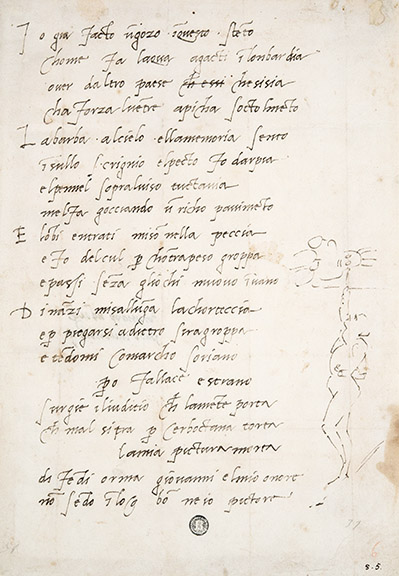 I o gia facto ū gozo ī questo stēto
chome fa laqua agacti ī lombardia
over daltro paese ch essi che sisia
cha forza lvētre apicha socto lmēto
L a barba alcielo ella memoria sento
ī sullo scrignio elpecto fo darpia
elpennel sopraluiso tuctauia
mel fa gocciando ū richo pauimēto
E lobi entrati miso nella peccia
e fo delcul p chōtrapeso groppa
e passi seza gliochi muouo ī uano
D inazi misallūga lachorteccia
e p piegarsi adietro si ragroppa
e tēdomi comarcho soriano
po fallace e strano
surgie iliuditio ch lamēte porta
ch mal si tra p cerboctana torta
lamia pictura morta
di fēdi orma giovanni elmio onore
nō sēdo ī loco bō ne io pictore
8.5.